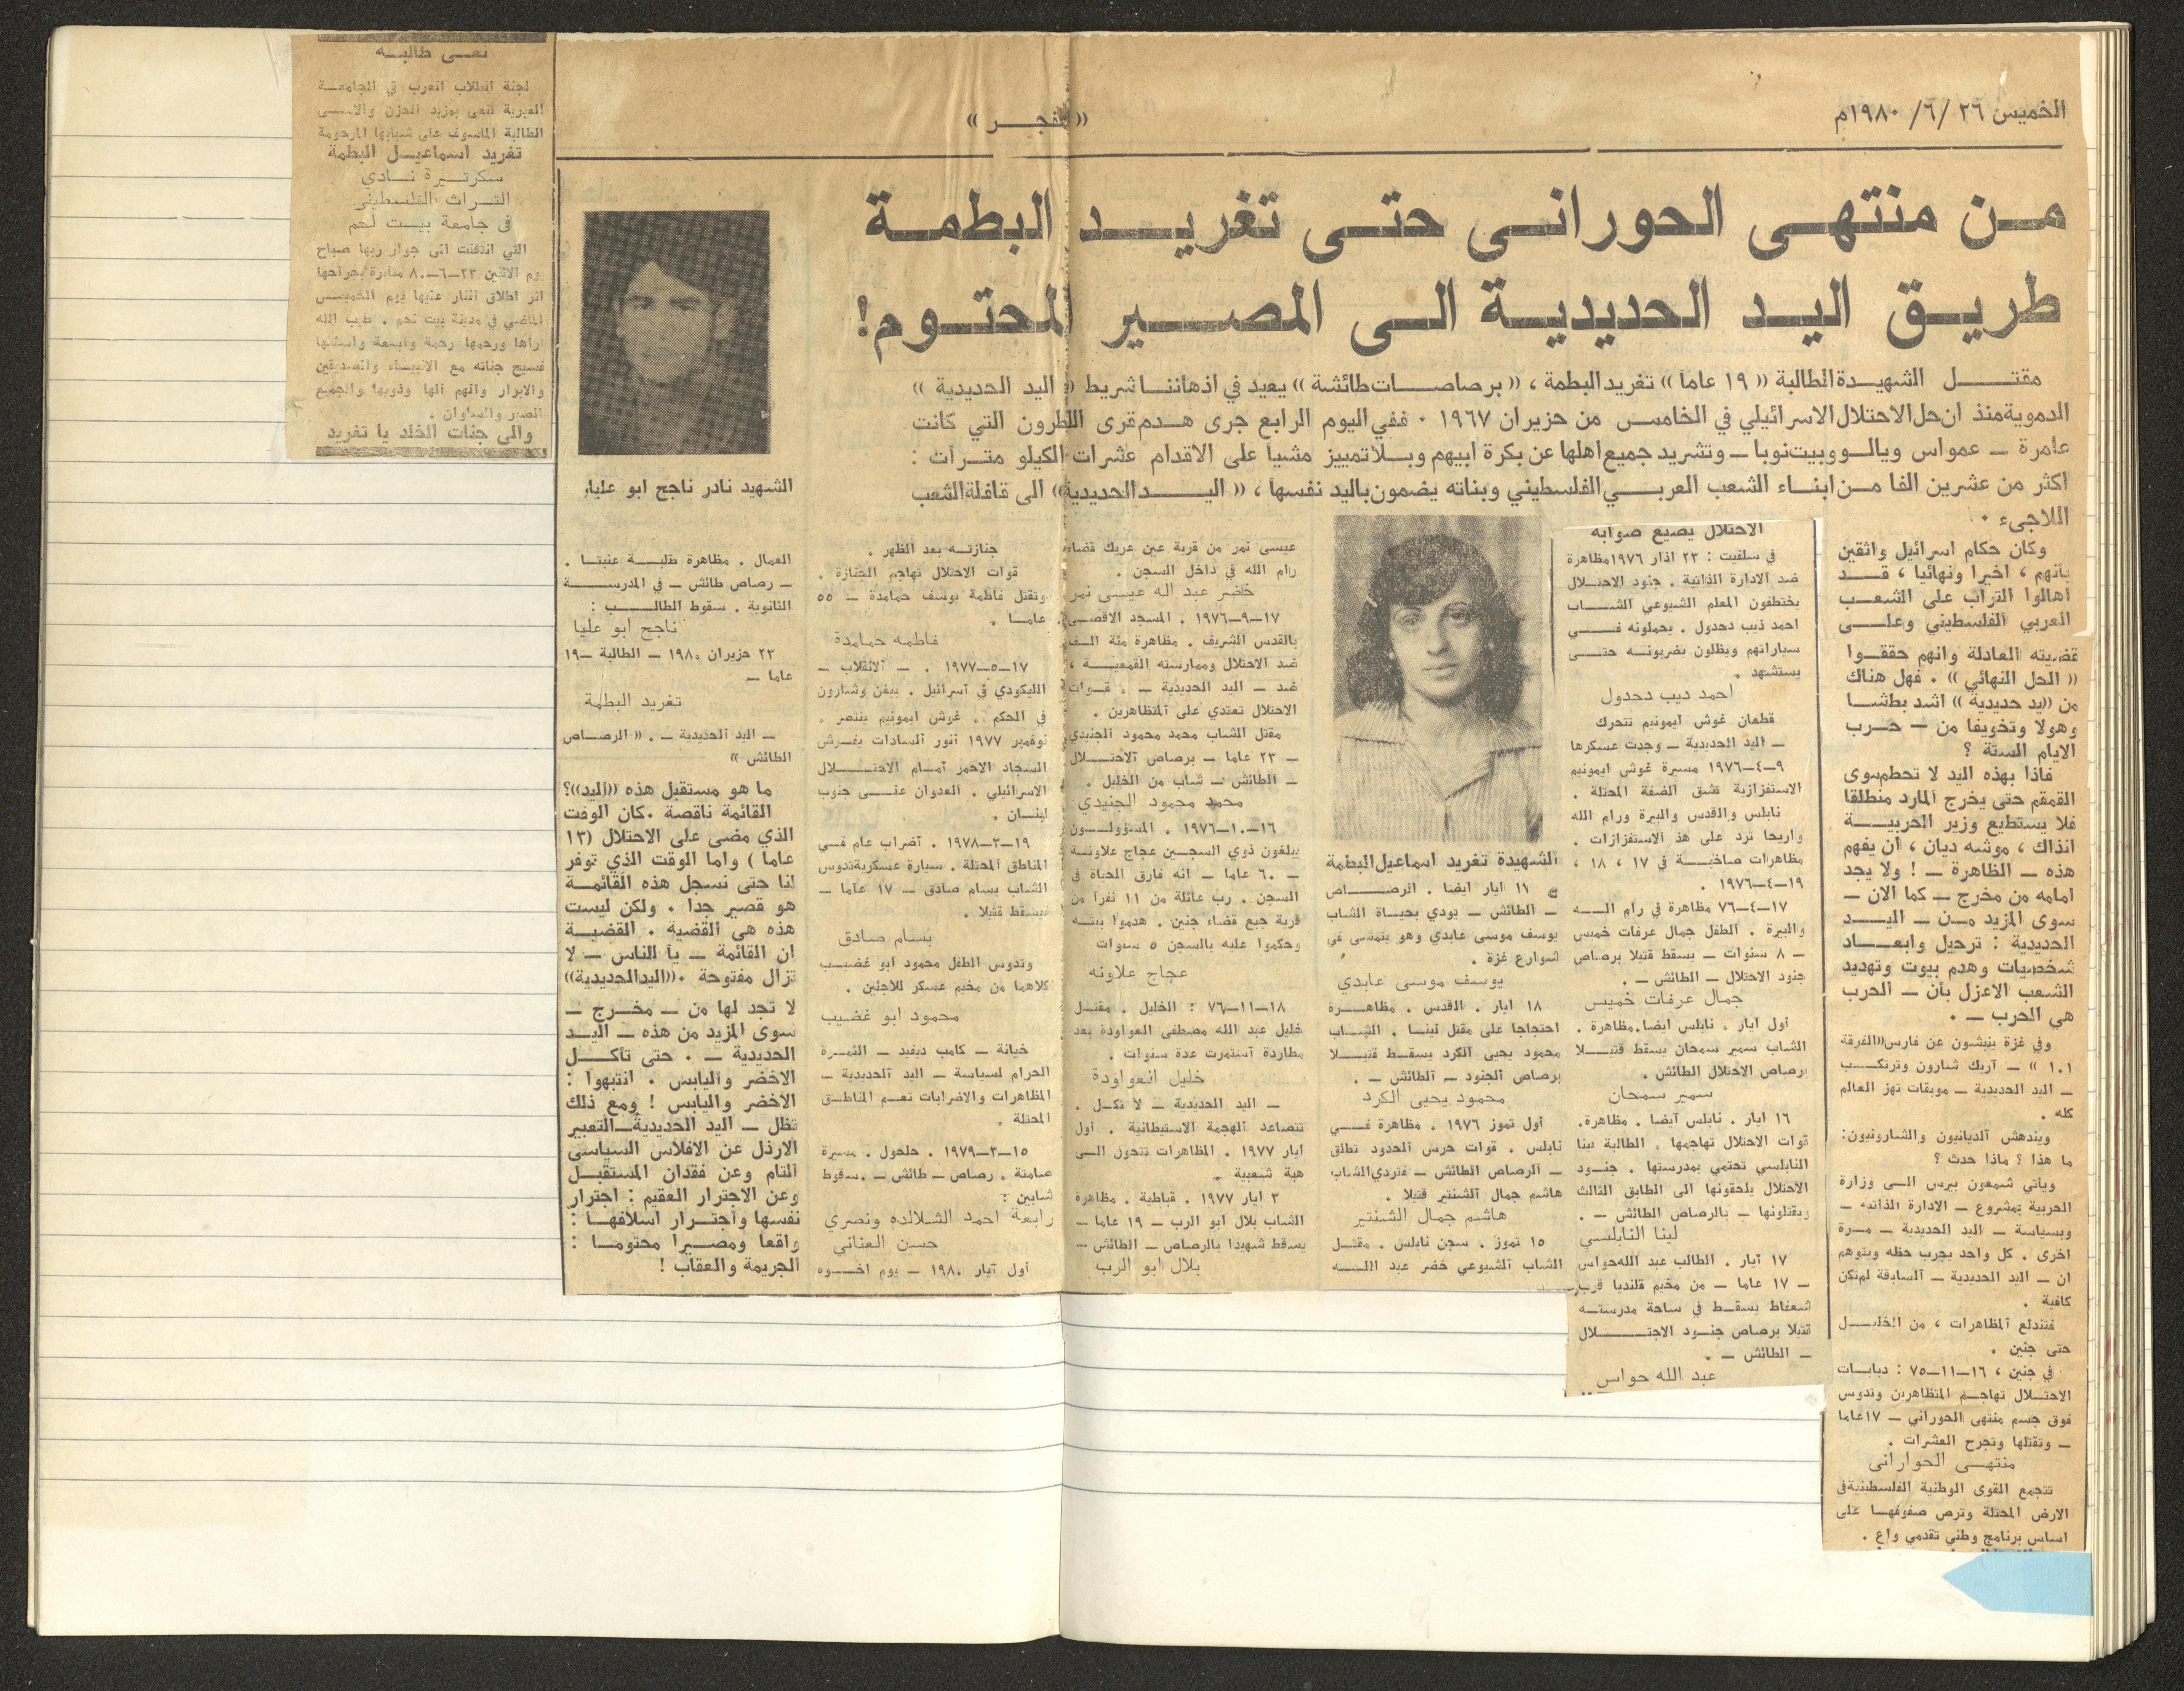 الخميس ٢٦ /٦/ ١٩٨٠م
«الفجر»
من منتهى الحوراني حتى تغريد البطمة
طريق اليد الحديدية الى المصير المحتوم!
مقتل الشهيدة الطالبة «١٩ عاما» تغريد البطمة ، «برصاصات طائشة» يعيد في اذهاننا شريط «اليد الحديدية»
الدموية منذ ان حل الاحتلال الاسرائيلي في الخامس من حزيران ١٩٦٧ ٠ ففي اليوم الرابع جرى هدم قرى اللطرون التي كانت
عامرة ــ عمواس ويالو وبيت نوبا ــ وتشريد جميع اهلها عن بكرة ابيهم وبلا تمييز مشيا على الاقدام عشرات الكيلو مترات :
اكثر من عشرين الفا من ابناء الشعب العربي الفلسطيني وبناته يضمون باليد نفسها ، «اليد الحديدية» الى قافلة الشعب
اللاجىء ٠
وكان حكام اسرائيل واثقين
بأنهم ، اخيرا ونهائيا ، قد
اهالوا التراب على الشعب
العربي الفلسطيني وعلى
قضيته العادلة وانهم حققوا
«الحل النهائي» ٠ فهل هناك
من «يد حديدية» اشد بطشا
وهولا وتخويفا من ــ حرب
الايام الستة ؟
فاذا بهذه اليد لا تحطم سوى
القمقم حتى يخرج المارد منطلقا
فلا يستطيع وزير الحربية
آنذاك ، موشه ديان ، أن يفهم
هذه ــ الظاهرة ــ ! ولا يجد
امامه من مخرج ــ كما الان ــ
سوى المزيد من ــ اليد
الحديدية : ترحيل وابعاد
شخصيات وهدم بيوت وتهديد
الشعب الاعزل بأن ــ الحرب
هي الحرب ــ ٠
وفي غزة ينبشون عن فارس «الفرقة
١٠١ » ــ أريك شارون وترتكب
ــ اليد الحديدية ــ موبقات تهز العالم
كله .
ويندهش الديانيون والشارونيون:
ما هذا ؟ ماذا حدث ؟
ويأتي شمعون بيرس الى وزارة
الحربية بمشروع ــ الادارة الذاتيه ــ
وبسياسة ــ اليد الحديدية ــ مرة
اخرى . كل واحد يجرب حظه ويتوهم
ان ــ اليد الحديدية ــ السابقة لم تكن
كافية .
فتندلع المظاهرات ، من الخليل
حتى جنين .
في جنين ، ١٦ــ١١ــ٧٥ : دبابات
الاحتلال تهاجم المتظاهرين وتدوس
فوق جسم منتهى الحوراني ــ ١٧ عاما
ــ وتقتلها وتجرح العشرات .
منتهى الحوارانى
تتجمع القوى الوطنية الفلسطينية في
الارض المحتلة وترص صفوفها على
اساس برنامج وطني تقدمي واع .
الاحتلال يضيع صوابه
في سلفيت : ٢٣ اذار ١٩٧٦ مظاهرة
ضد الادارة الذاتية . جنود الاحتلال
يختطفون المعلم الشيوعي الشاب
احمد ذيب دحدول . يحملونه في
سياراتهم ويظلون يضربونه حتى
يستشهد .
احمد ديب دحدول
قطعان غوش ايمونيم تتحرك
ــ اليد الحديدية ــ وجدت عسكرها
٩ــ٤ــ١٩٧٦ مسيرة غوش ايمونيم
الاستفزازية تشق الضفة المحتلة .
نابلس والقدس والبيرة ورام الله
واريحا ترد على هذ الاستفزازات .
مظاهرات صاخبة في ١٧ ، ١٨ ،
١٩ــ٤ــ١٩٧٦ .
١٧ــ٤ــ٧٦ مظاهرة في رام الله
والبيرة . الطفل جمال عرفات خميس
ــ ٨ سنوات ــ يسقط قتيلا برصاص
جنود الاحتلال ــ الطائش ــ .
جمال عرفات خميس
أول أيار . نابلس ايضا. مظاهرة .
الشاب سمير سمحان يسقط قتيلا
برصاص الاحتلال الطائش .
سمير سمحان
١٦ ايار . نابلس أيضا . مظاهرة.
قوات الاحتلال تهاجمها . الطالبة لينا
النابلسي تحتمي بمدرستها . جنود
الاحتلال يلحقونها الى الطابق الثالث
ويقتلونها ــ بالرصاص الطائش ــ .
لينا النابلسي
١٧ أيار . الطالب عبد الله حواس
ــ ١٧ عاما ــ من مخيم قلنديا قرب
شعفاط يسقط في ساحة مدرسته
قتيلا برصاص جنود الاحتلال
ــ الطائش ــ .
عبد الله حواس
الشهيدة تغريد اسماعيل البطمة
١١ ايار ايضا . الرصاص
ــ الطائش ــ يودي بحياة الشاب
يوسف موسى عابدي وهو يتمشى في
شوارع غزة .
يوسف موسى عابدي
١٨ ايار . القدس . مظاهرة
احتجاجا على مقتل لينا . الشاب
محمود يحيى الكرد يسقط قتيلا
برصاص الجنود ــ الطائش ــ .
محمود يحيى الكرد
أول تموز ١٩٧٦ . مظاهرة في
نابلس . قوات حرس الحدود تطلق
ــ الرصاص الطائش ــ فتردي الشاب
هاشم جمال الشنتير قتيلا .
هاشم جمال الشنتير
١٥ تموز . سجن نابلس . مقتل
الشاب الشيوعي خضر عبد الله
عيسى نمر من قرية عين عريك قضاء
رام الله في داخل السجن .
خضر عبد اله عيسى نمر
١٧ــ٩ــ١٩٧٦ . المسجد الاقصى
بالقدس الشريف . مظاهرة مئة الف
ضد الاحتلال وممارسته القمعية ،
ضد ــ اليد الحديدية ــ . قوات
الاحتلال تعتدي على المتظاهرين .
مقتل الشاب محمد محمود الجنيدي
ــ ٢٣ عاما ــ برصاص الاحتلال
ــ الطائش ــ شاب من الخليل .
محمد محمود الجنيدي
١٦ــ١٠ــ١٩٧٦ . المسؤولون
يبلغون ذوي السجين عجاج علاونة
ــ ٦٠ عاما ــ انه فارق الحياة في
السجن . رب عائلة من ١١ نفرا من
قرية جبع قضاء جنين . هدموا بيته
وحكموا عليه بالسجن ٥ سنوات
عجاج علاونه
١٨ــ١١ــ٧٦ : الخليل . مقتل
خليل عبد الله مصطفى العواودة بعد
مطاردة استمرت عدة سنوات .
خليل العواودة
ــ اليد الحديدية ــ لا تكل .
تتصاعد الهجمة الاستيطانية . أول
ايار ١٩٧٧ . المظاهرات تتحول الى
هبة شعبية .
٣ ايار ١٩٧٧ . قباطية . مظاهرة
الشاب بلال ابو الرب ــ ١٩ عاما ــ
يسقط شهيدا بالرصاص ــ الطائش ــ
بلال ابو الرب
جنازته بعد الظهر .
قوات الاحتلال تهاجم الجنازة .
وتقتل فاطمة يوسف حمامدة ــ ٥٥
عاما .
فاطمه حمامدة
١٧ــ٥ــ١٩٧٧ . ــ الانقلاب ــ
الليكودي في اسرائيل . بيغن وشارون
في الحكم . غوش ايمونيم ينتصر .
نوفمبر ١٩٧٧ أنور السادات يفرش
السجاد الاحمر أمام الاحتلال
الاسرائيلي . العدوان على جنوب
لبنان .
١٩ــ٣ــ١٩٧٨ . اضراب عام في
المناطق المحتلة . سيارة عسكرية تدوس
الشاب بسام صادق ــ ١٧ عاما ــ
فيسقط قتيلا .
بسام صادق
وتدوس الطفل محمود ابو غضيب
كلاهما من مخيم عسكر للاجئين .
محمود ابو غضيب
خيانة ــ كامب ديفيد ــ الثمرة
الحرام لسياسة ــ اليد الحديدية ــ
المظاهرات والاضرابات تعم المناطق
المحتلة .
١٥ــ٣ــ١٩٧٩ . حلحول . مسيرة
صامتة . رصاص ــ طائش ــ . سقوط
شابين :
رابعة احمد الشلالده ونصري
حسن العناني
أول أيار ١٩٨٠ ــ يوم اخوه
الشهيد نادر ناجح ابو عليا
العمال . مظاهرة طلبة عنبتا .
ــ رصاص طائش ــ في المدرسة
الثانوية . سقوط الطالب :
ناجح ابو عليا
٢٣ حزيران ١٩٨٠ ــ الطالبة ــ ١٩
عاما ــ
تغريد البطمة
ــ اليد الحديدية ــ . «الرصاص
الطائش»
ما هو مستقبل هذه «اليد»؟
القائمة ناقصة . كان الوقت
الذي مضى على الاحتلال (١٣
عاما ) واما الوقت الذي توفر
لنا حتى نسجل هذه القائمة
هو قصير جدا . ولكن ليست
هذه هي القضية . القضية
ان القائمة ــ يا الناس ــ لا
تزال مفتوحة . «اليد الحديدية»
لا تجد لها من ــ مخرج ــ
سوى المزيد من هذه ــ اليد
الحديدية ــ ٠ حتى تأكل
الاخضر واليابس ٠ انتبهوا :
الاخضر واليابس ! ومع ذلك
تظل ــ اليد الحديدية ــ التعبير
الارذل عن الافلاس السياسي
التام وعن فقدان المستقبل
وعن الاجترار العقيم : اجترار
نفسها وأجترار اسلافها :
واقعا ومصيرا محتوما :
الجريمة والعقاب !
نعى طالبه
لجنة الطلاب العرب في الجامعة
العبرية تنعى بمزيد الحزن والاسى
الطالبة الماسوف على شبابها المرحومة
تغريد اسماعيل البطمة
سكرتيرة نادي
التراث الفلسطيني
في جامعة بيت لحم
التي انتقلت الى جوار ربها صباح
يوم الاثنين ٢٣ــ٦ــ٨٠ متأثرة بجراحها
اثر اطلاق النار عليها يوم الخميس
الماضي في مدينة بيت لحم . طيب الله
ثراها ورحمها رحمة واسعة واسكنها
فسيح جنانه مع الانبياء والصديقين
والابرار والهم الها وذويها والجميع
الصبر والسلوان .
والى جنات الخلد يا تغريد